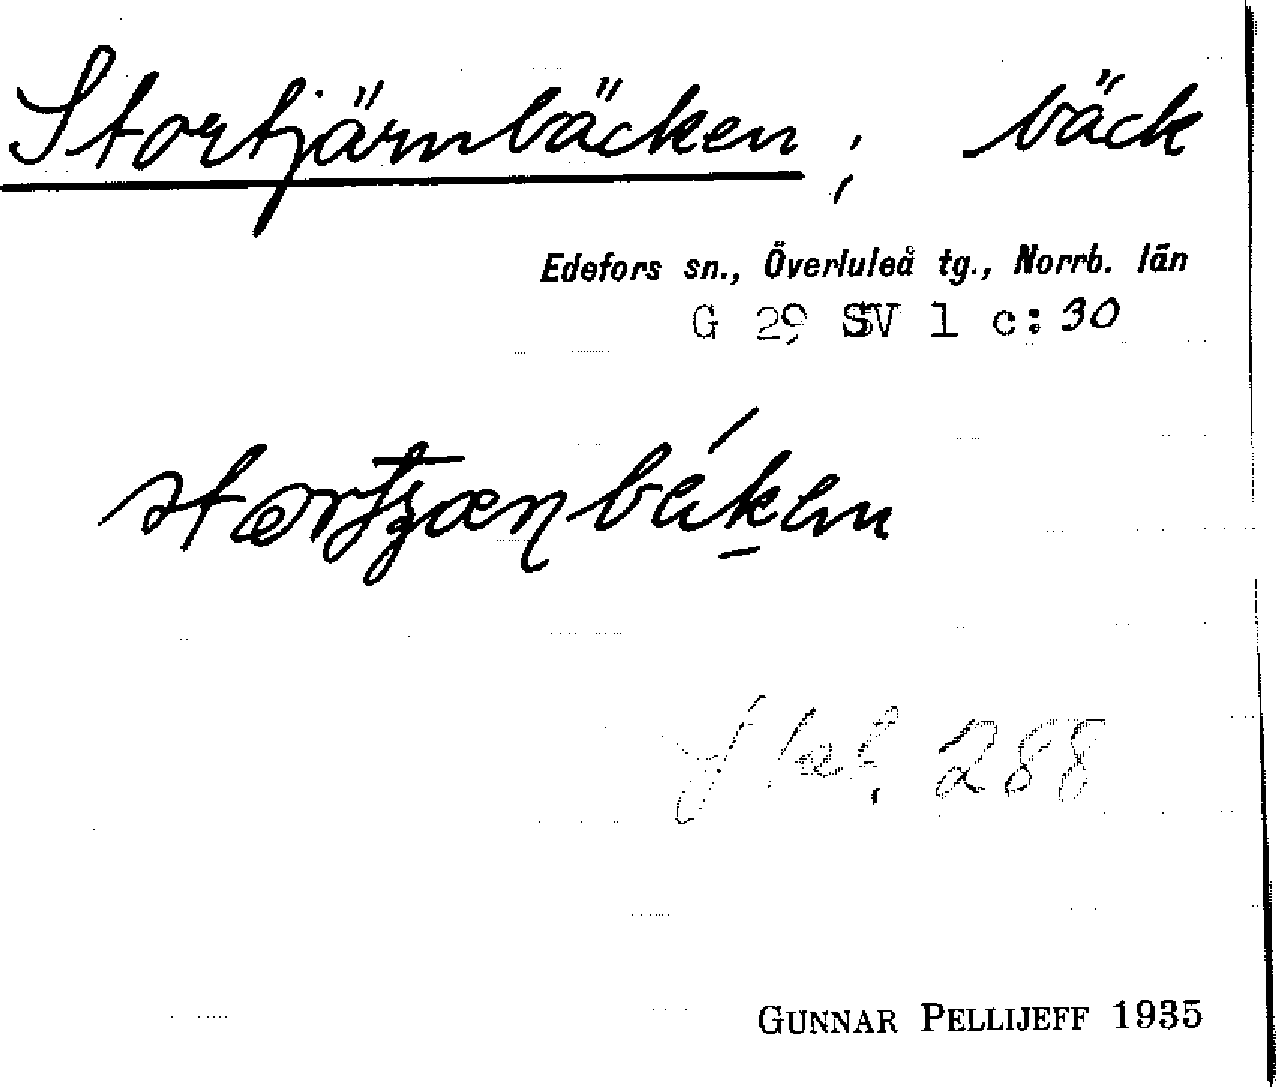 Stortjärnbäcken, bäck
Edefors sn., Överluleå tg., Norrb. län
G 29 SV 1 c: 30
288
GUNNAR PELLIJEFF 1935